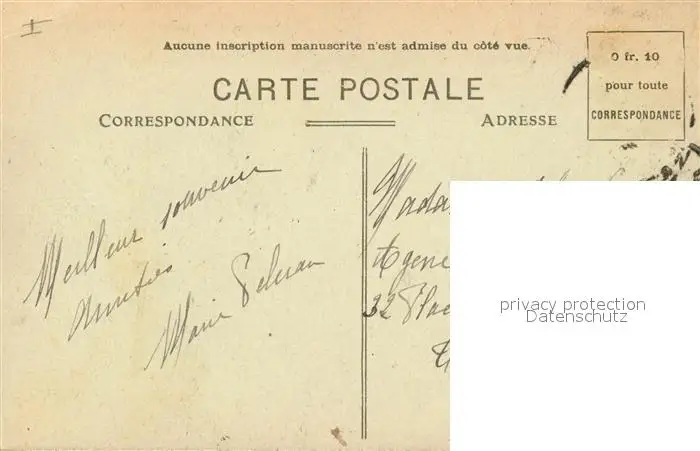 Aucune inscription manuscrite n'est admise du côté vue.
CARTE POSTALE
CORRESPONDANCE
ADRESSE
0 fr. 10
pour toute
CORRESPONDANCE
Meilleur souvenir
Amitiés
Marie
Mada
Agene
32 Plac
privacy protection
Datenschutz